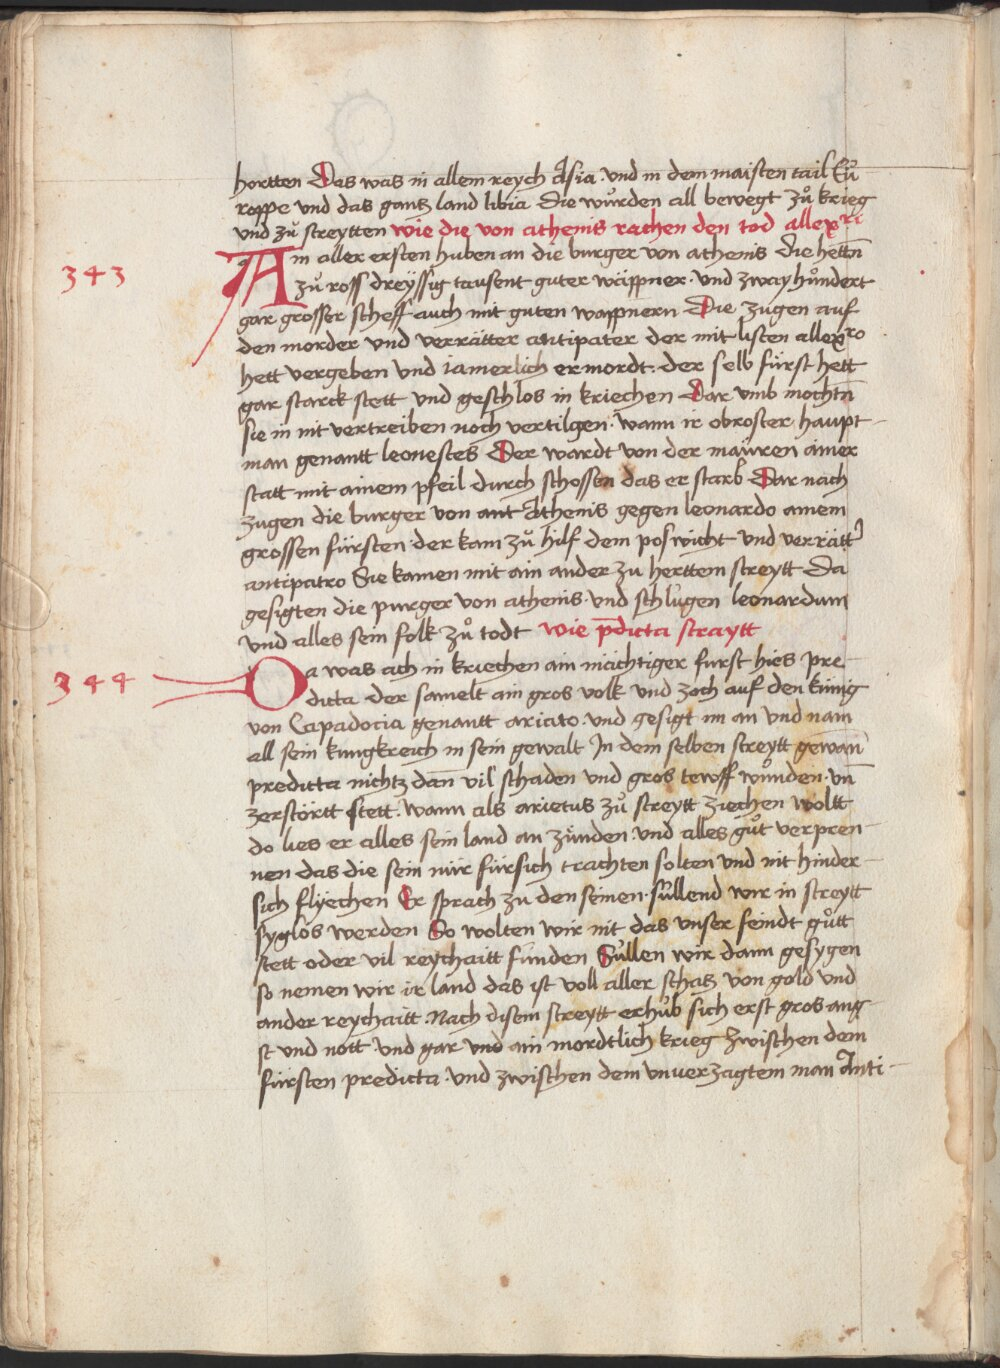 hortten Das was in allem reych Asia · und in dem maisten tail Eu̇
roppe und das gantz land libia Die wůrden all bewegt zů krieg
und zu streytten wie die von athenis rachen den tod allexri
343
Am aller ersten huben an die burger von athenis Die hettn̄
zů ross dreyssig tausent guter wäppner · und zway hůndert
gar grosser scheff auch mit guten wappnern Die zugen auf
den morder und verrätter antipater der mit listen allexro
hett vergeben und iamerlich ermordt · der selb fürst hett
gar starck stett und geschlos in kriechen Dar umb mochtn̄
sie in nit vertreiben noch vertilgen · wann ir obroster haupt-
man genantt leonestes Der wardt von der mauren ainer
statt mit ainem pfeil durch schossen das er starb Dar nach
zugen die burger von ant Athenis gegen leonardo ainem
grossen fürsten der kam zů hilf dem poswicht und verrätt'
antipatro Sie kamen mit ain ander zu herttem streytt Da
gesigten die purger von athenis · und schlugen leonardum
und alles sein folk zů todt wie p̄dicta straytt
344
Da was ach in kriechen ain mächtiger furst hies pre-
dicta der samelt ain gros volk und zoch auf den künig
von Capadocia genantt ariato · und gesigt im an und nam
all sein kungkreich in sein gewalt In dem selben streytt gewan̄
predicta nichtz dan̄ vil schaden und gros tewff wůnden · un̄
zerstörtt stett · wann als arietus zů streytt ziechen woltt
do lies er alles sein land an zünden · und alles gůt verpren-
nen das die sein nür fürsich trachten solten und nit hinder-
sich flÿechen Er sprach zu den seinen · sullend wir in streytt
syglos werden So wolten wir nit das unser feindt gůtt
stett oder vil reychaitt funden Sullen wir dann gesygen
so nemen wir ir land das ist voll aller schatz von gold und
ander reychaitt · Nach disem streytt erhub sich erst gros ang-
st und nott · und gar und ain mordtlich krieg zwischen dem
fürsten predicta · und zwischen dem unverzagtem man Anti-